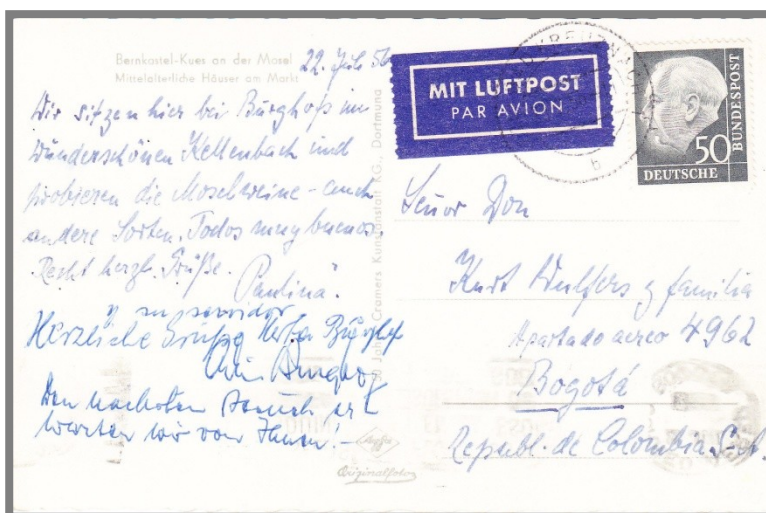 Bernkastel-Kues an der Mosel
Mittelalterliche Häuser am Markt
22. Juli 56
Wir sitzen hier bei Burghofs im
wunderschönen Kellenbach und
probieren die Moselweine - auch
andere Sorten. Todos muy buenos.
Recht herzl. Grüße.
Paulina.
y su servidor
Herzliche Grüße Herta Burghof
Den nächsten Besuch er-
warten wir von Ihnen! -
Cramers Kunstanstalt KG., Dortmund
Agfa
Originalfoto
MIT LUFTPOST
PAR AVION
b
50
DEUTSCHE
BUNDESPOST
Señor Don
Kurt Wulfers y familia
Apartado aereo 4962
Bogotá
Republ. de Colombia S.-A.